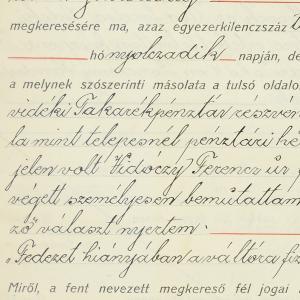 megkeresésére ma, azaz egyezerkilenczszáz
hó nyolczadik napján, de
a melynek szószerinti másolata a tulsó oldalo
vidéki Takarékpénztár részvén
la mint telepesnél pénztári he
jelen volt Vidóczy Ferencz úr
végett személyesen bemutattam
zó" választ nyertem.
"Fedezet hiányjában a váltóra fiz
Miről, a fent nevezett megkereső fél jogai